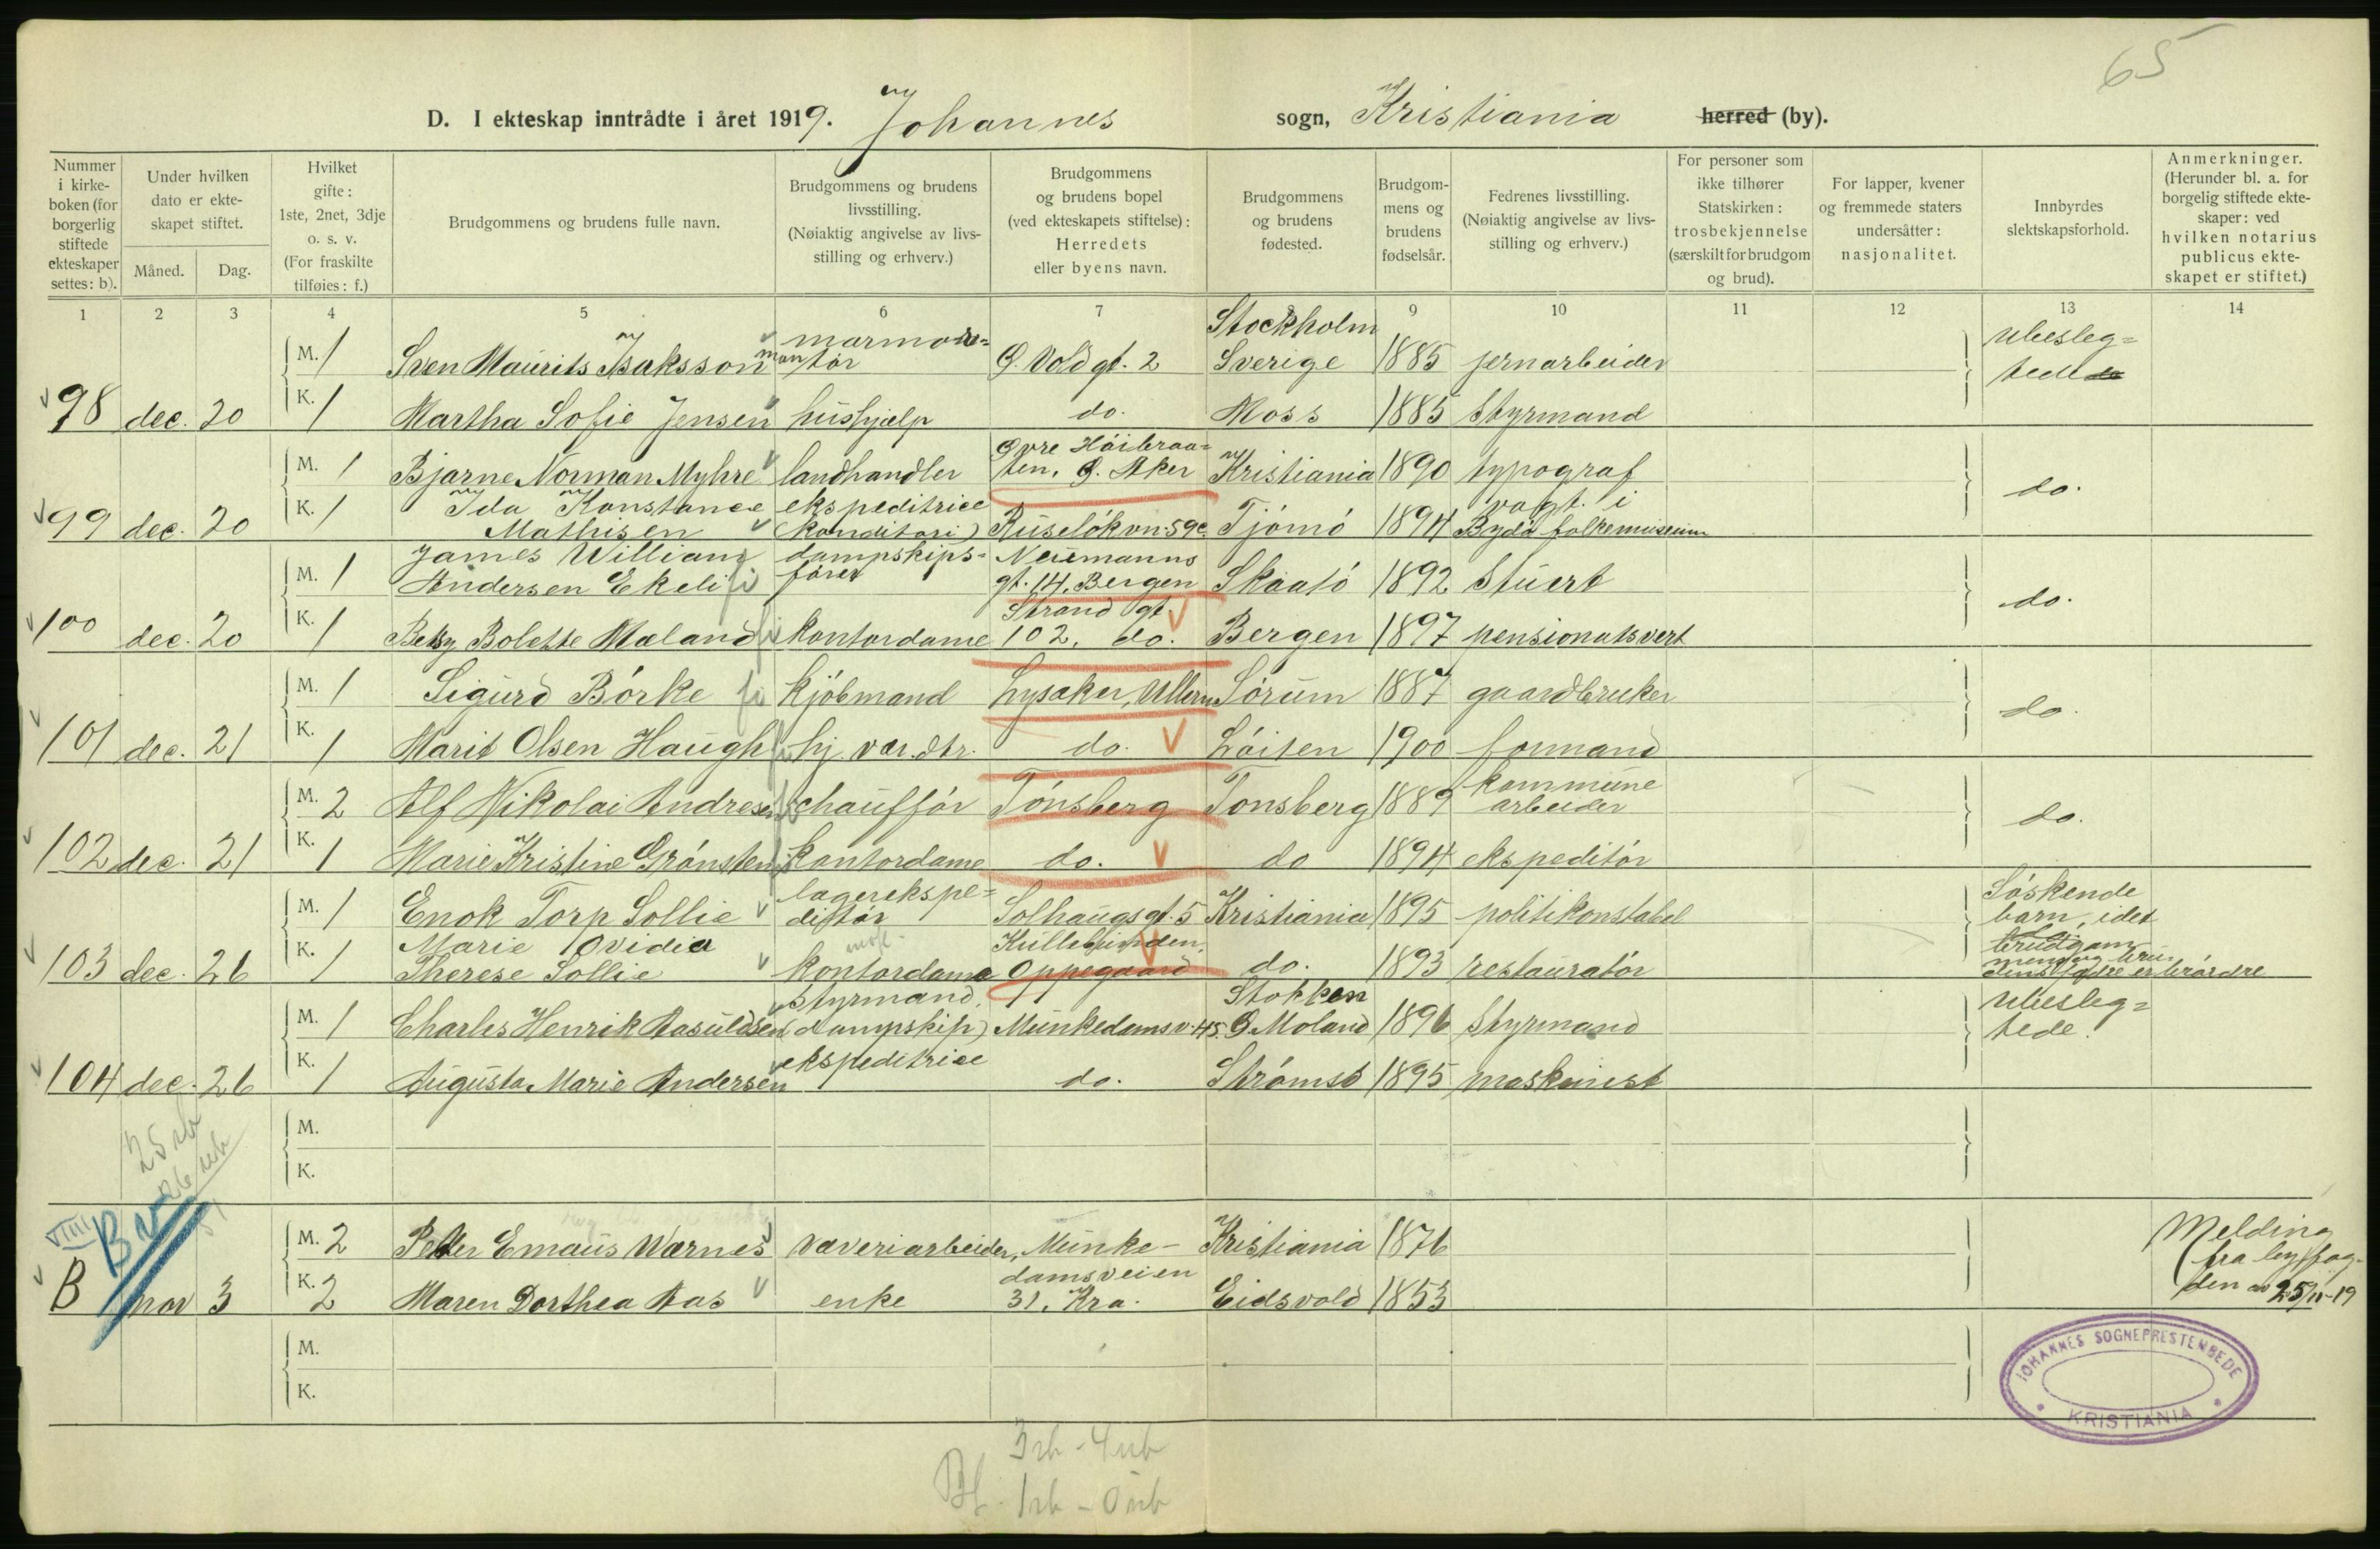 65
D. I ekteskap inntrådte i året 1919. Johannes sogn, Kristiania herred (by).
Nummer i kirke-boken (for borgerlig stiftede ekteskaper settes: b).
Under hvilken dato er ekte-skapet stiftet.
Måned. Dag.
Hvilket gifte: 1ste, 2net, 3dje o. s. v. (For fraskilte tilføies: f.)
Brudgommens og brudens fulle navn.
Brudgommens og brudens livsstilling. (Nøiaktig angivelse av livs-stilling og erhverv.)
Brudgommens og brudens bopel (ved ekteskapets stiftelse): Herredets eller byens navn.
Brudgommens og brudens fødested.
Brudgom-mens og brudens fødselsår.
Fedrenes livsstilling. (Nøiaktig angivelse av livs-stilling og erhverv.)
For personer som ikke tilhører Statskirken: trosbekjennelse (særskilt for brudgom og brud).
For lapper, kvener og fremmede staters undersåtter: nasjonalitet.
Innbyrdes slektskapsforhold.
Anmerkninger. (Herunder bl. a. for borgelig stiftede ekte-skaper: ved hvilken notarius publicus ekte-skapet er stiftet.)
1 2 3 4 5 6 7 8 9 10 11 12 13 14
M. 1 Sven Maurits Isaksson marmor=montør Ø. Voldgt. 2 Stockholm Sverige 1885 jernarbeider Ubesleg=tede
98 dec. 20 K. 1 Martha Sofie Jensen hushjælp do. Moss 1885 Styrmand
M. 1 Bjarne Norman Myhre landhandler Øvre Høibraa=ten, Ø. Aker Kristiania 1890 typograf do.
99 dec. 20 K. 1 Ida Konstance Mathisen ekspeditrice (konditori) Ruseløkvn. 59c Tjømø 1894 vagt. i Bygdø folkemuseum
M. 1 James William Andersen Ekeli dampskips=fører Neumanns gt. 14. Bergen Skaatø 1892 Stuert do.
100 dec. 20 K. 1 Betsy Bolette Mæland kontordame Strand gt 102. do. Bergen 1897 pensionatsvert
M. 1 Sigurd Børke kjøbmand Lysaker, Ullern Sørum 1887 gaardbruker do.
101 dec. 21 K. 1 Marit Olsen Haugh hj. vær. dtr. do. Løiten 1900 formand
M. 2 Alf Nikolai Andresen chauffør Tønsberg Tønsberg 1889 kommune arbeider do.
102 dec. 21 K. 1 Marie Kristine Grønsten kontordame do. do 1894 ekspeditør
M. 1 Enok Torp Sollie lagerekspe=ditør Solhaugsgt. 5 Kristiania 1895 politikonstabel Søskende barn, idet brudgommens og brudens fædre er brødre
103 dec. 26 K. 1 Marie Ovidia Therese Sollie kontordame Oppegaard do. 1893 restauratør
M. 1 Charles Henrik Aasuldsen styrmand (dampskip) Munkedamsv. 45. Stokken Ø. Moland 1896 Styrmand Ubesleg=tede.
104 dec. 26 K. 1 Augusta Marie Andersen ekspeditrice do. Strømst 1895 maskinist
M.
K.
25 rb
26 ub
51
M. 2 Peder Emaus Wærnes væveriarbeider, Munke- Kristiania 1876 Melding
B nov 3 K. 2 Maren Dorthea Aas enke damsveien 31. Kra. Eidsvold 1853 fra byfog-den av 25/11-19
M.
K.
JOHANNES SOGNEPRESTEMBEDE
KRISTIANIA
3 rb - 4 ub
Bf. 1 rb - 0 ub